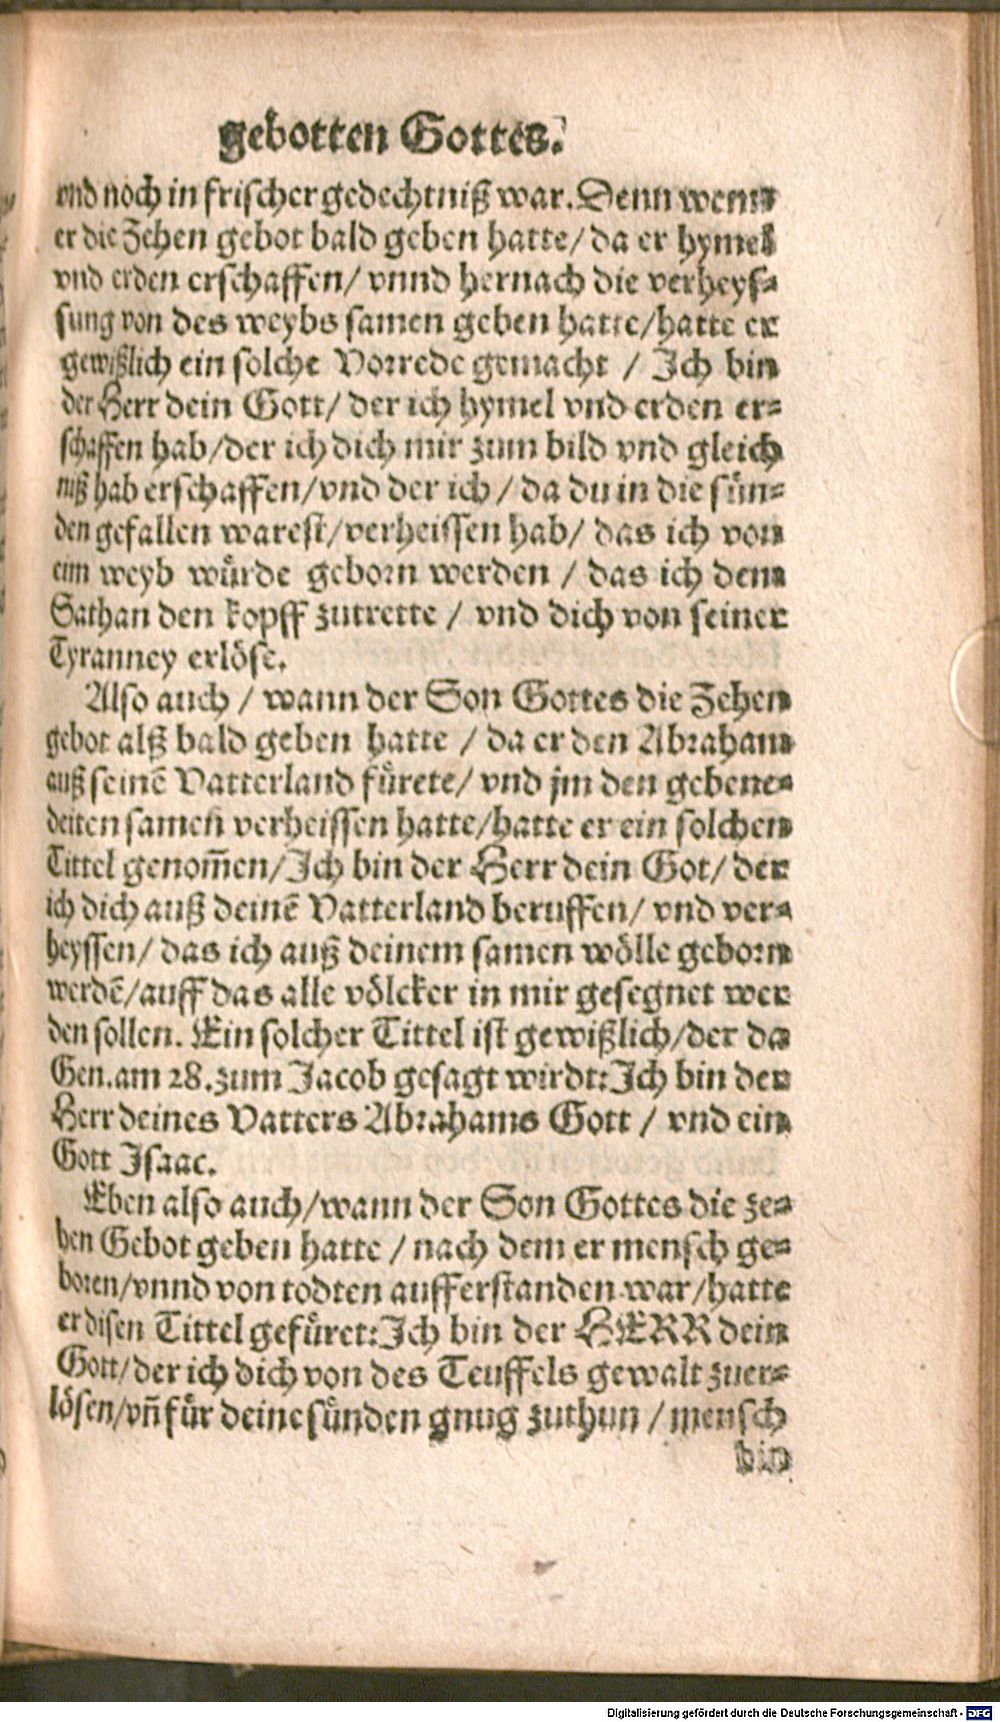 gebotten Gottes.
vnd noch in frischer gedechtniß war. Denn wenn
er die Zehen gebot bald geben hatte/ da er hymel
vnd erden erschaffen/ vnnd hernach die verheys⸗
sung von des weybs samen geben hatte/hatte er
gewißlich ein solche Vorrede gemacht / Ich bin
der Herr dein Gott/ der ich hymel vnd erden er⸗
schaffen hab/der ich dich mir zum bild vnd gleich
niß hab erschaffen/vnd der ich / da du in die sün⸗
den gefallen warest/verheissen hab/ das ich von
eim weyb würde geborn werden / das ich dem
Sathan den kopff zutrette / vnd dich von seiner
Tyranney erlöse.
Also auch / wann der Son Gottes die Zehen
gebot alß bald geben hatte / da er den Abraham
auß seinē Vatterland fürete/ vnd jm den gebene⸗
deiten samen verheissen hatte/hatte er ein solchen
Tittel genom̄en/Ich bin der Herr dein Got/ der
ich dich auß deinē Vatterland beruffen/ vnd ver⸗
heyssen/ das ich auß deinem samen wölle geborn
werdē/auff das alle völcker in mir gesegnet wer
den sollen. Ein solcher Tittel ist gewißlich/der da
Gen. am 28. zum Jacob gesagt wirdt: Ich bin der
Herr deines Vatters Abrahams Gott / vnd ein
Gott Isaac.
Eben also auch/wann der Son Gottes die ze⸗
hen Gebot geben hatte / nach dem er mensch ge⸗
boren/vnnd von todten aufferstanden war/hatte
er disen Tittel gefüret: Ich bin der HERR dein
Gott/der ich dich von des Teuffels gewalt zuer⸗
lösen/vn̄ für deine sünden gnug zuthun / mensch
bin
Digitalisierung gefördert durch die Deutsche Forschungsgemeinschaft - DFG